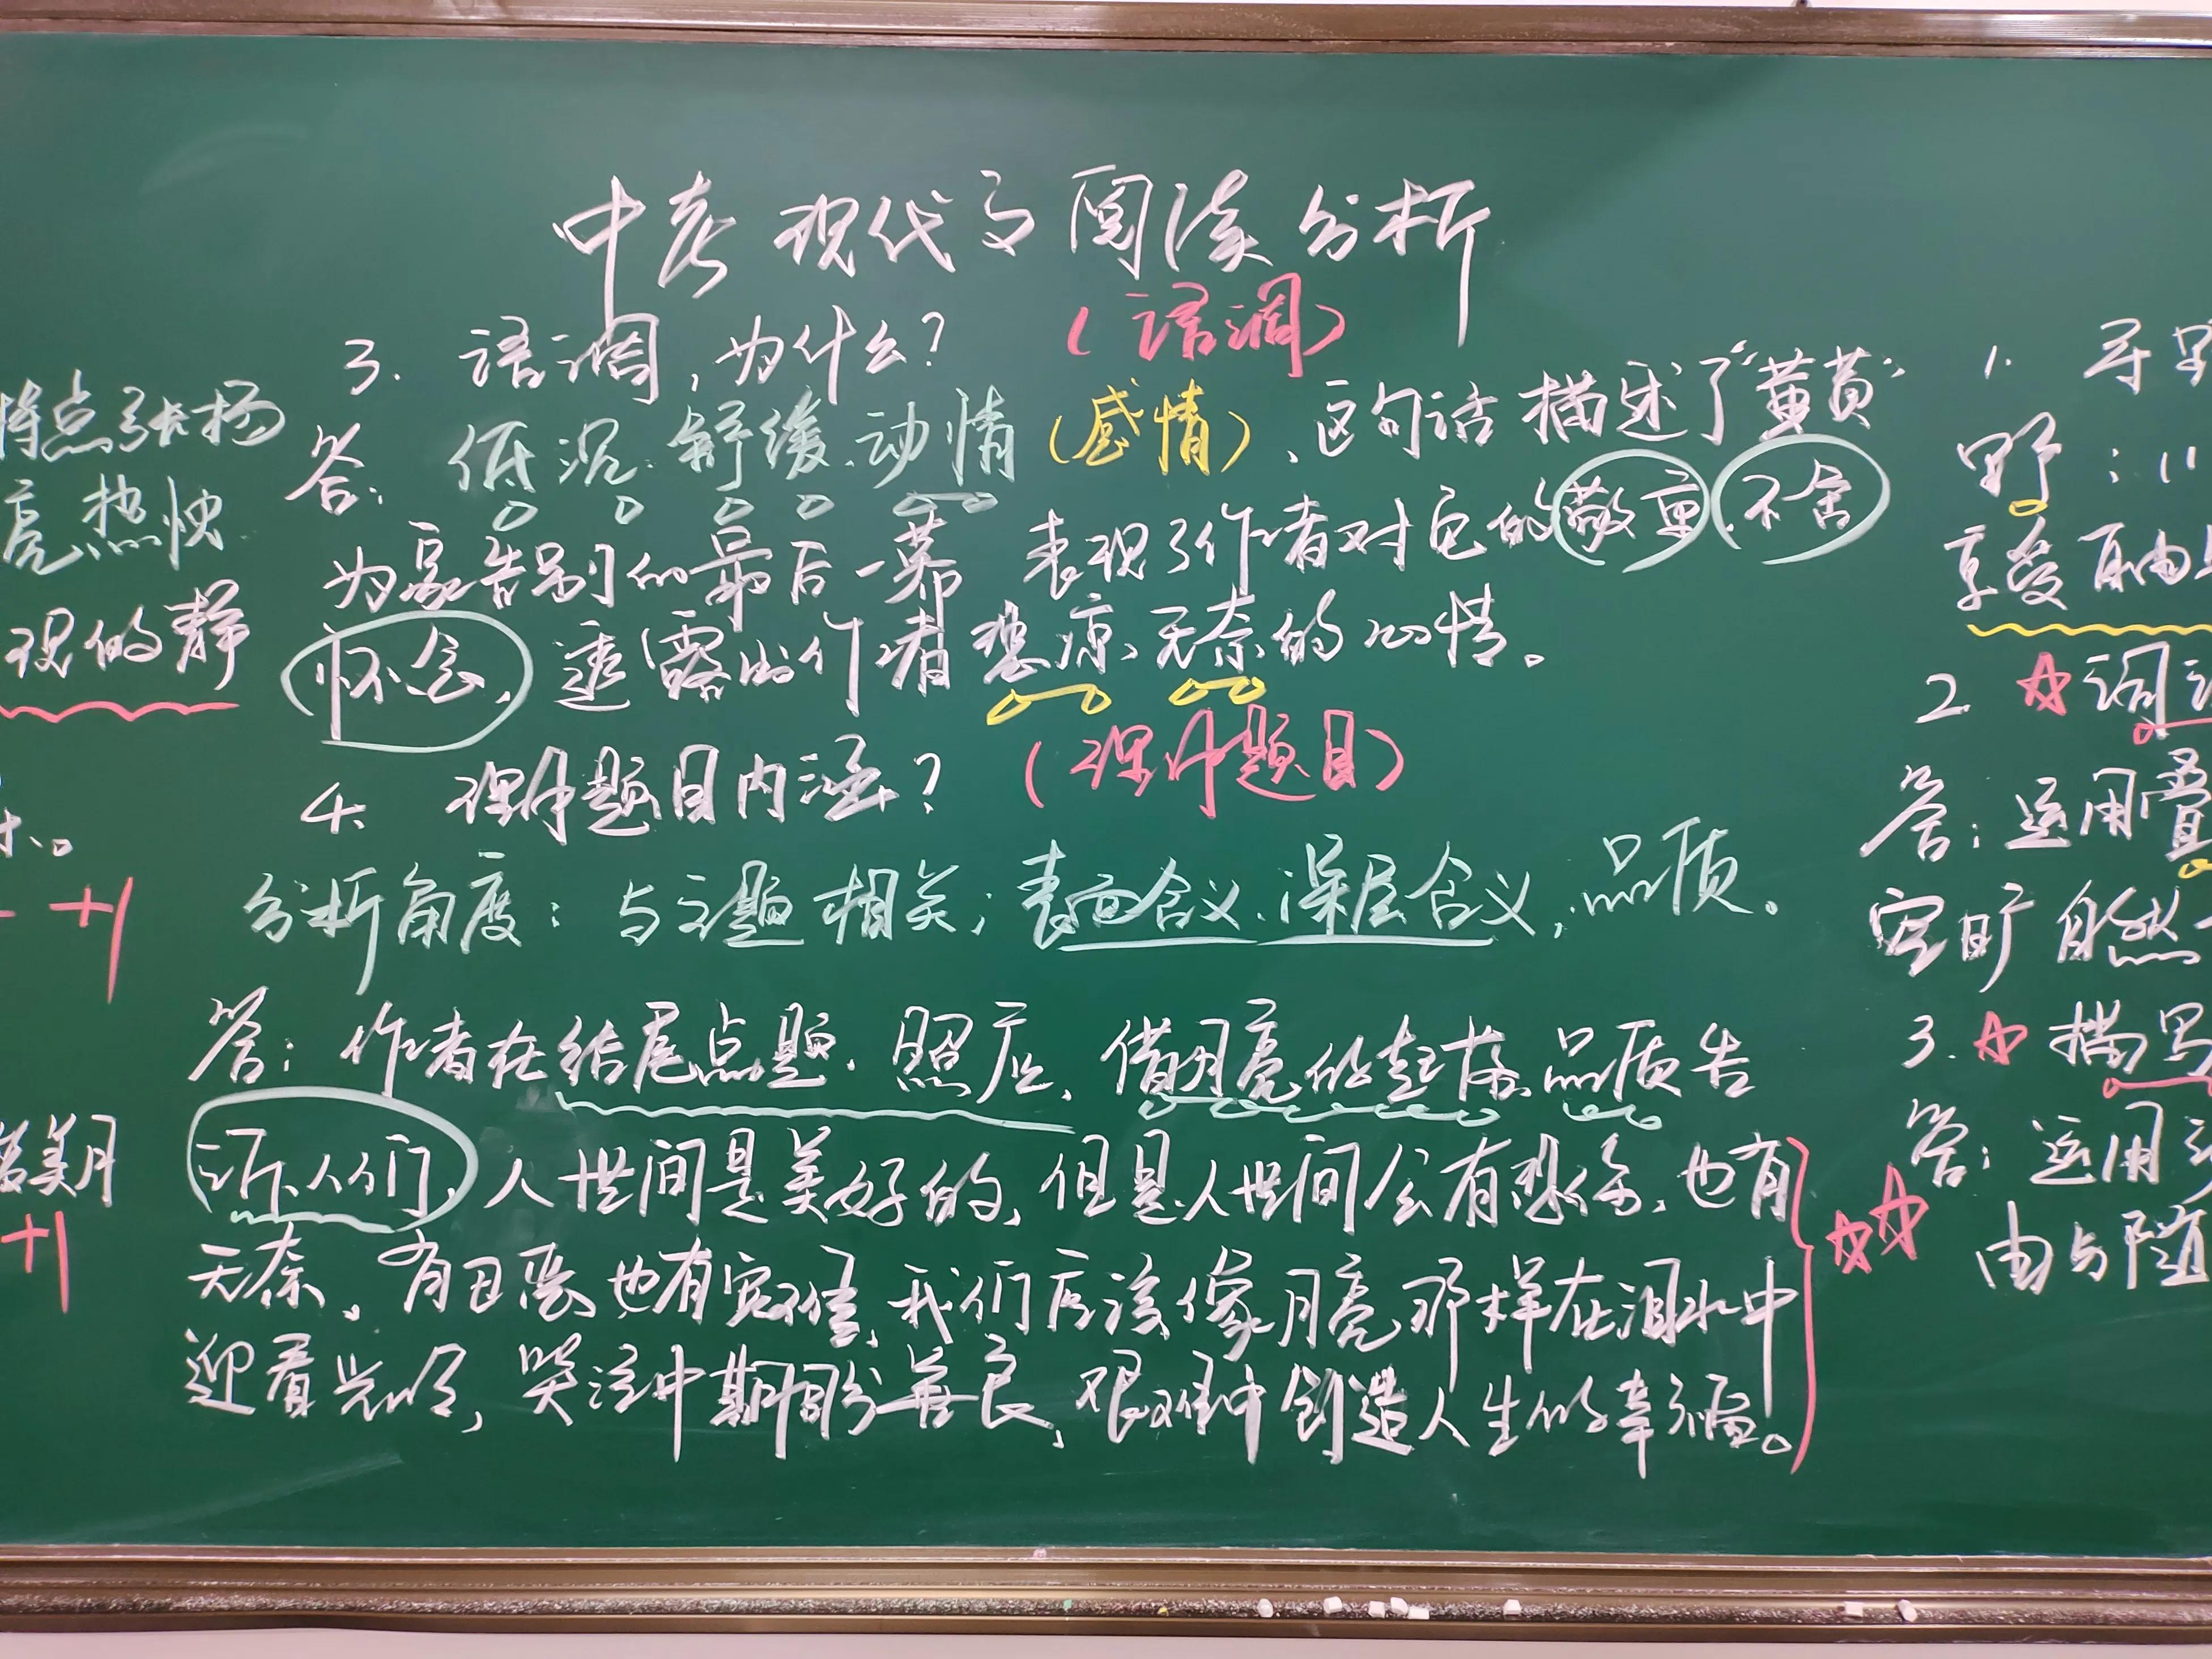 中考现代文阅读分析
3. 语调,为什么? (语调)
答: 低沉、舒缓、动情 (感情)、这句话描述了"黄黄"
为家告别的最后一幕 表现了作者对它的敬重、不舍
怀念, 透露出作者悲凉、无奈的心情。
4. 课外题目内涵? (课外题目)
分析角度: 与主题相关; 表面含义、深层含义; 品质。
答: 作者在结尾点题、照应、借月亮的起落、品质告
诉人们, 人世间是美好的, 但是人世间会有悲伤, 也有
无奈, 有丑恶也有, 我们应该像月亮那样在泪水中
迎着光明, 中期盼善良, 艰难中创造人生的幸福。
特点张扬
亮、热烈
现的静
+1
+1
1. 寻
野: 11
享受自由
2. ☆词
答: 运用叠
空旷自然
3. ☆描写
答: 运用
由与随